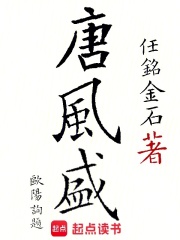 任銘金石著
唐風盛
歐陽詢題
起点 起点读书